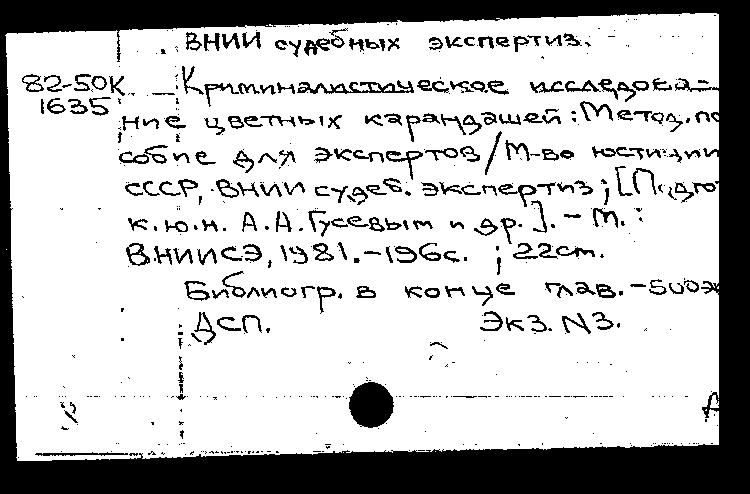 ВНИИ судебных экспертиз.
82-50К Криминалистическое исследова-
1635
ние цветных карандашей: Метод. по
собие для экспертов/М-во юстиции
СССР, ВНИИ судеб. экспертиз; [Подго
к.ю.н. А.А.Гусевым и др.]. - М.:
ВНИИСЭ, 1981. - 196с. ; 22см.
Библиогр. в конце глав. - 500э
ДСП. Экз. N3.